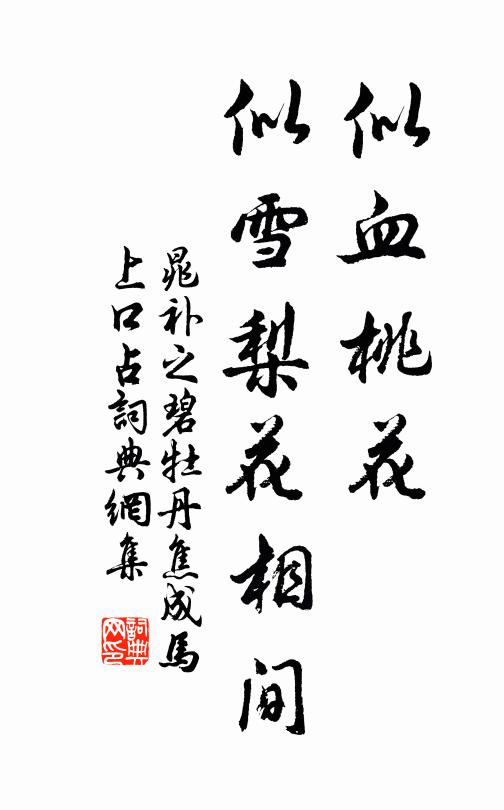 似血桃花
似雪梨花相间
晁补之碧牡丹焦成馬
上口占詞典網集
詞典
网印